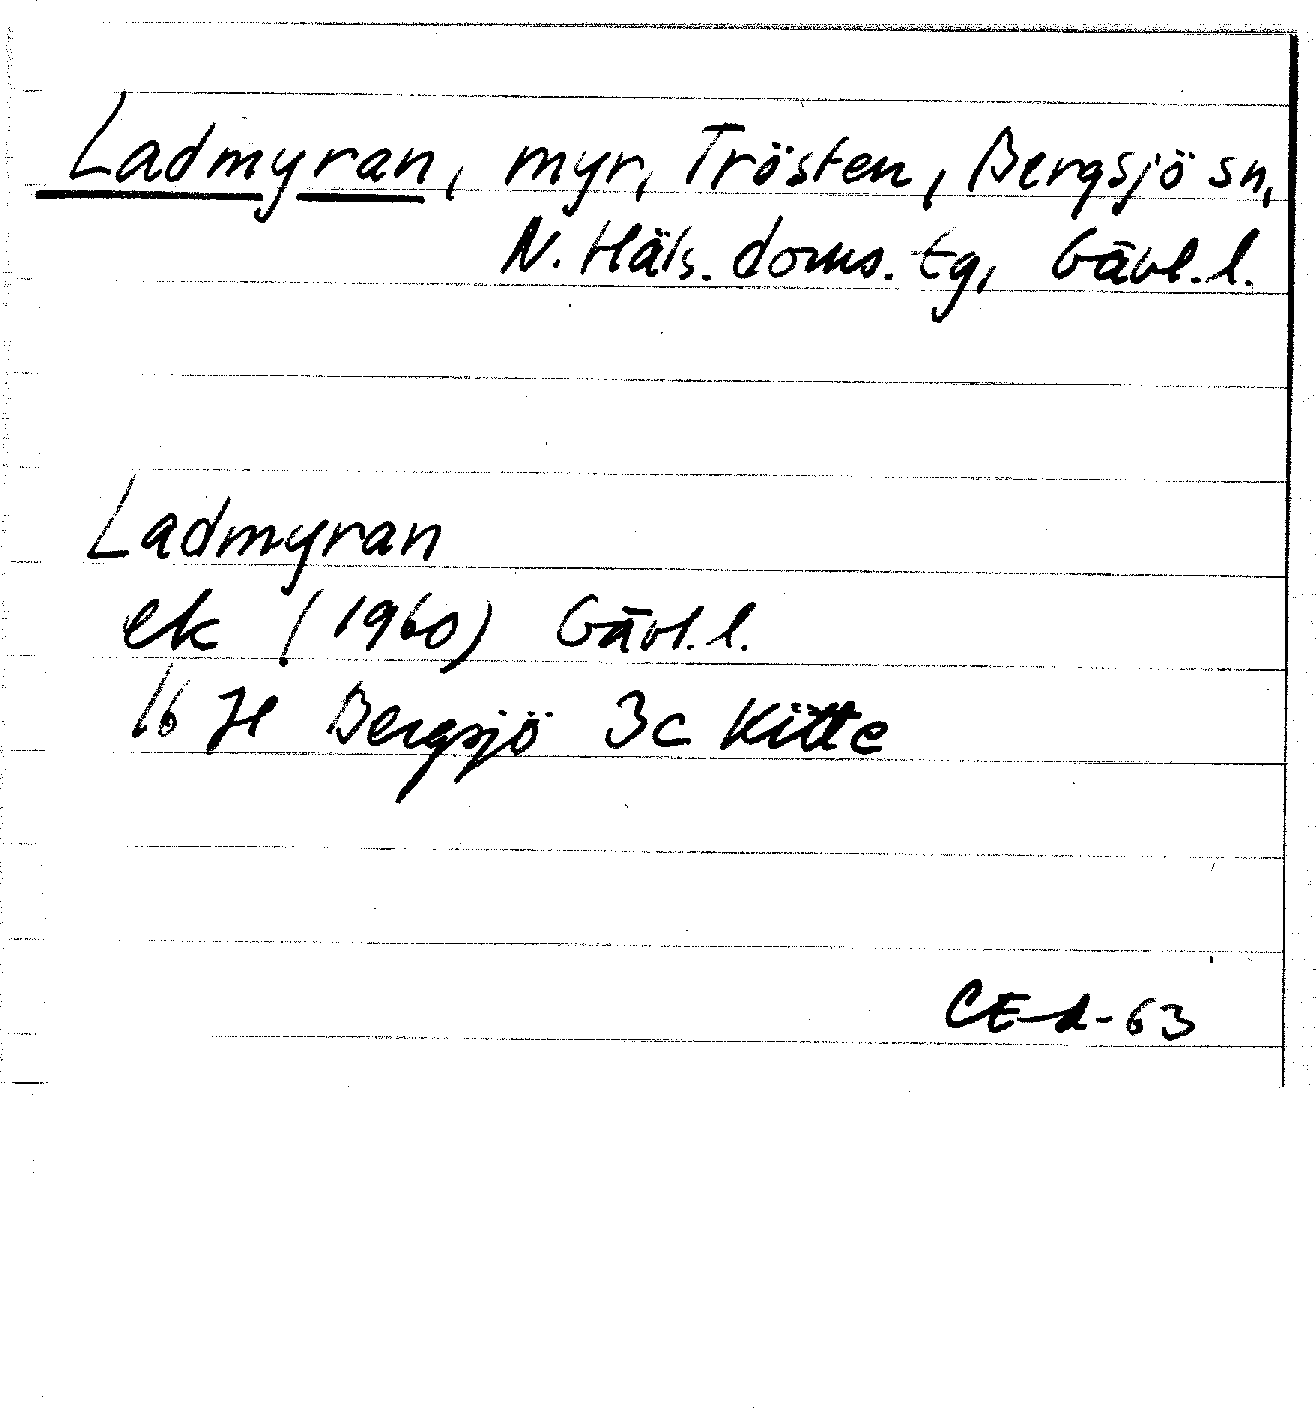 Ladmyran, myr, Trösten, Bergsjö sn,
N. Häls. doms. tg, Gävl. l.
Ladmyran
ek (1960) Gävl. l.
16 H Bergsjö 3c Kitte
63